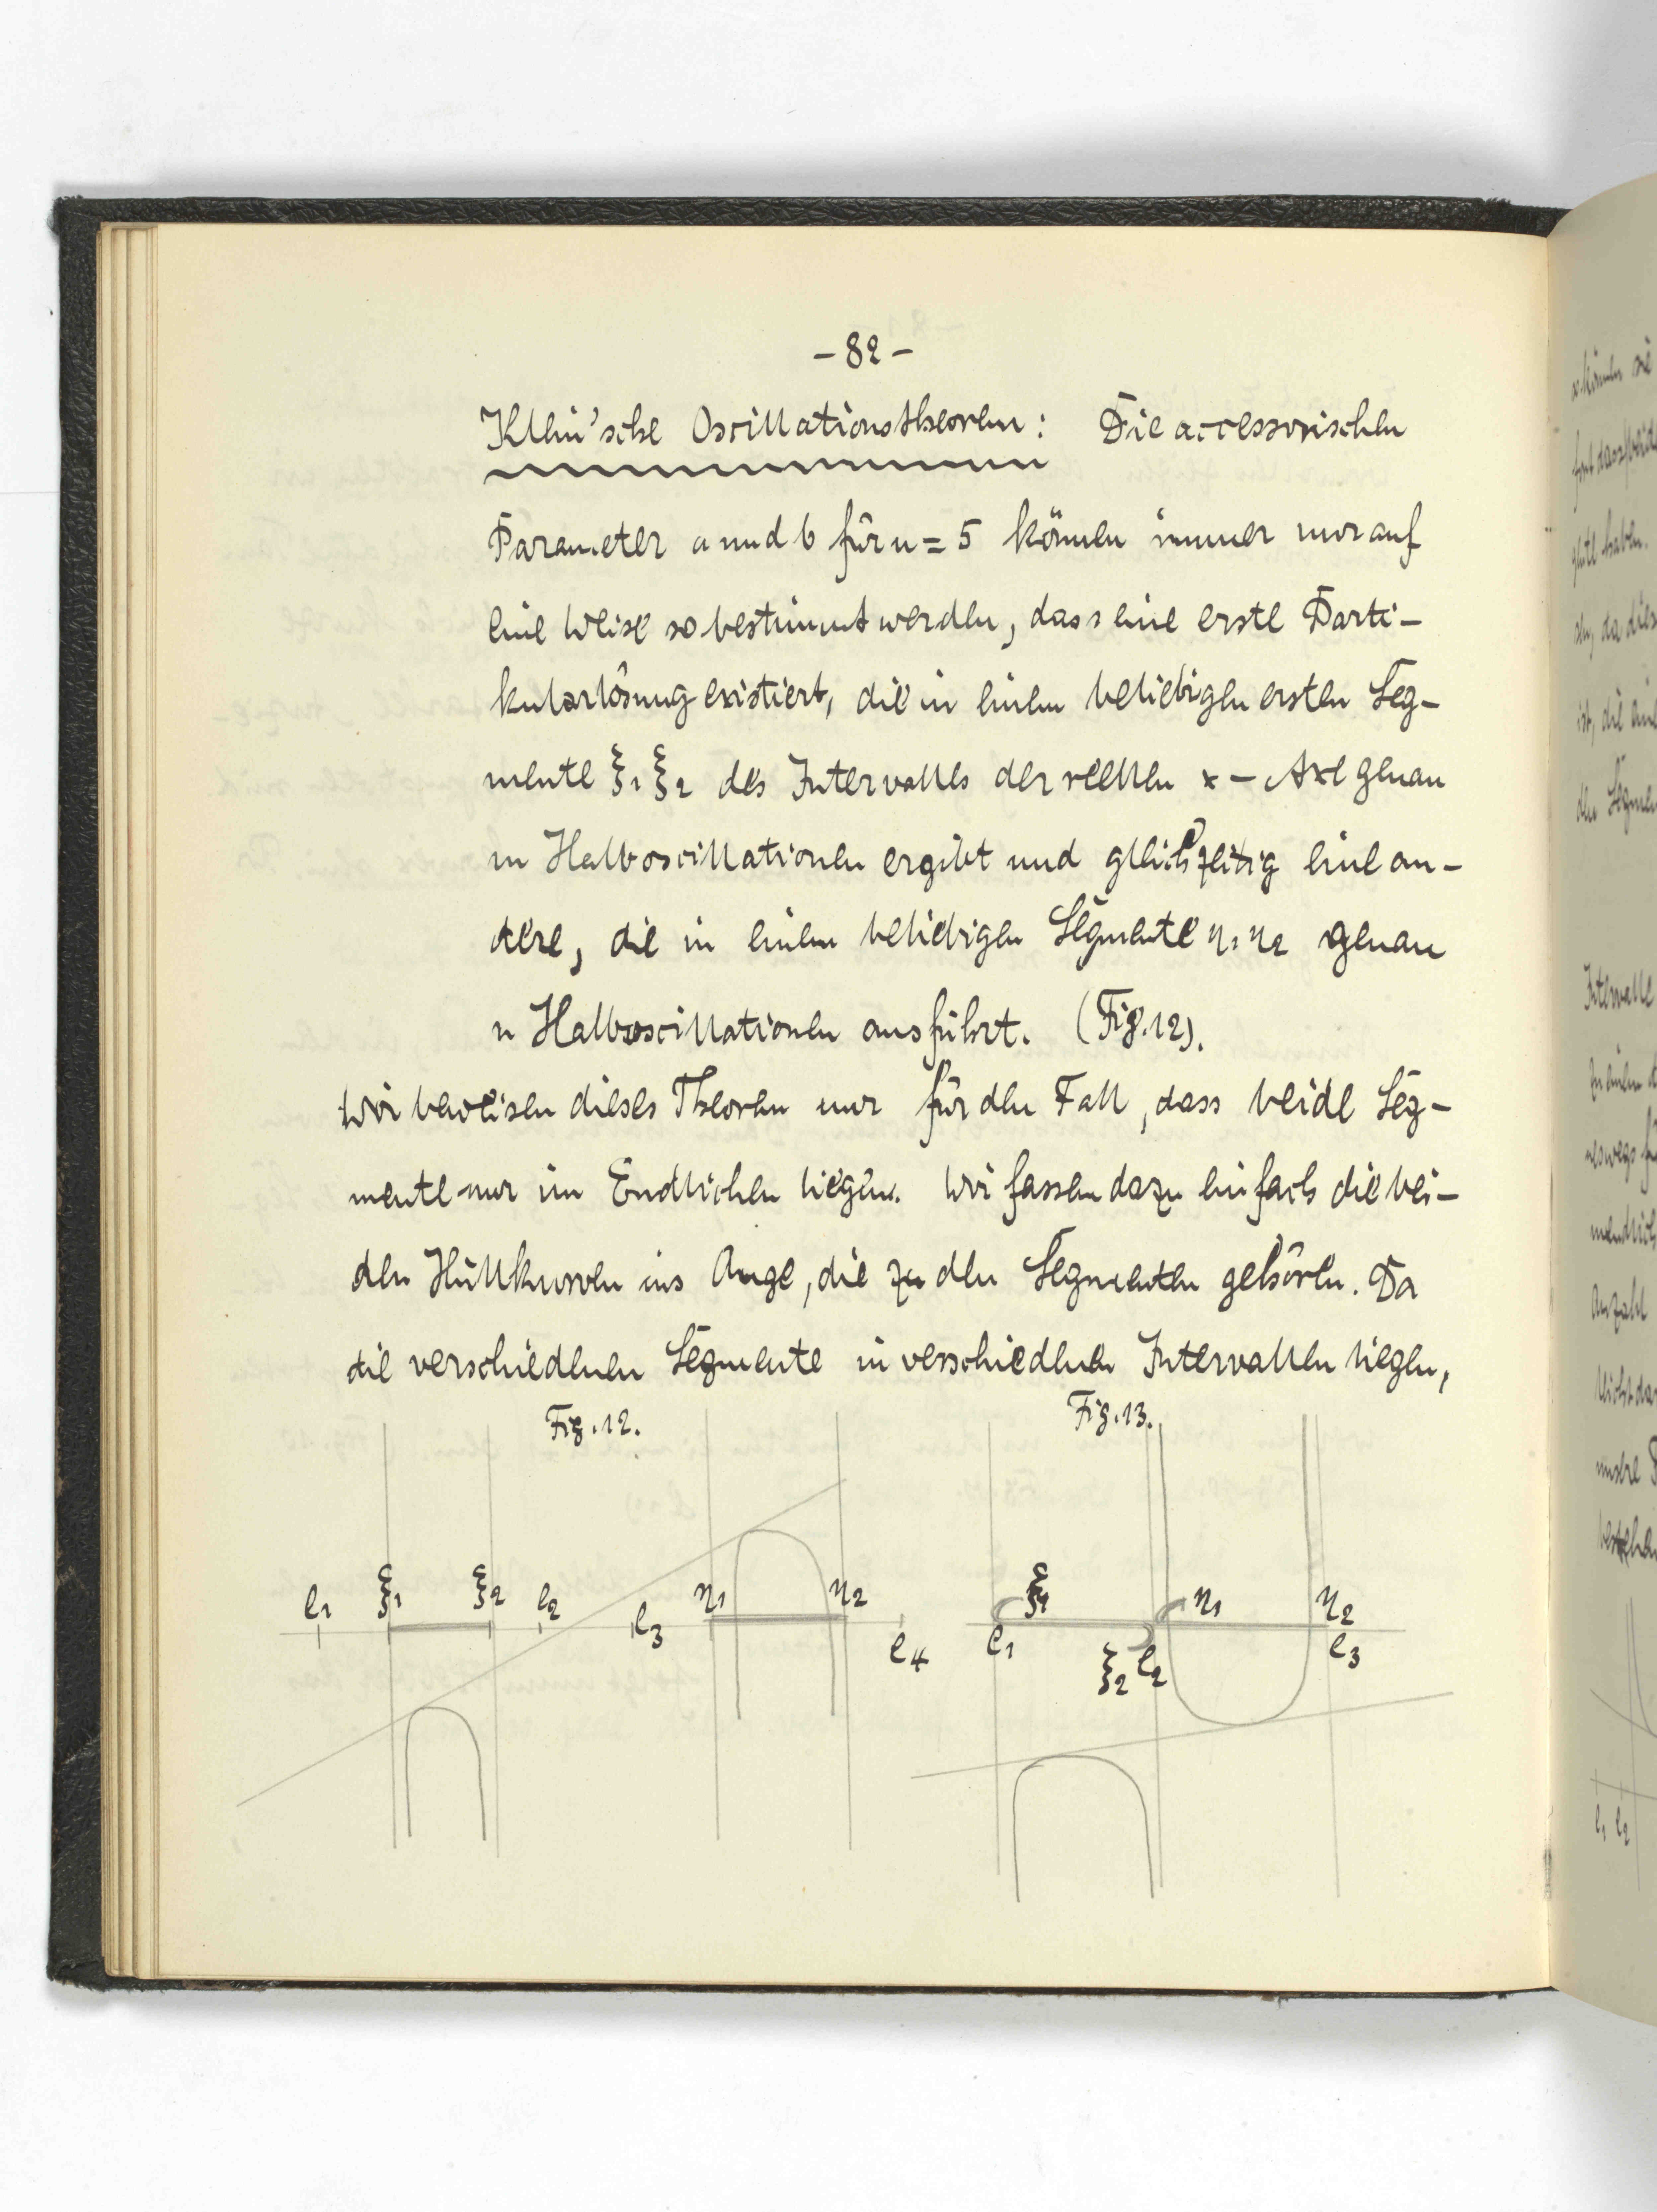 - 82 -
Klein'sche Oscillationstheorem: Die accessorischen
Parameter a und b für n = 5 können immer nur auf
eine Weise so bestimmt werden, dass eine erste Parti-
kularlösung existiert, die in einem beliebigen ersten Seg-
mente ξ1 ξ2 des Intervalles der reellen x - Axe genau
m Halboscillationen ergibt und gleichzeitig eine an-
dere, die in einem beliebigen Segmente η1 η2 genau
n Halboscillationen ausführt. (Fig. 12).
Wir beweisen dieses Theorem nur für den Fall, dass beide Seg-
mente nur im Endlichen liegen. Wir fassen dazu einfach die bei-
den Hüllkurven ins Auge, die zu den Segmenten gehören. Da
die verschiedenen Segmente in verschiedenen Intervallen liegen,
Fig. 12. Fig. 13.
e1 ξ1 ξ2 e2 e3 η1 η2 e4
e1 ξ1 ξ2 e2 η1 η2 e3